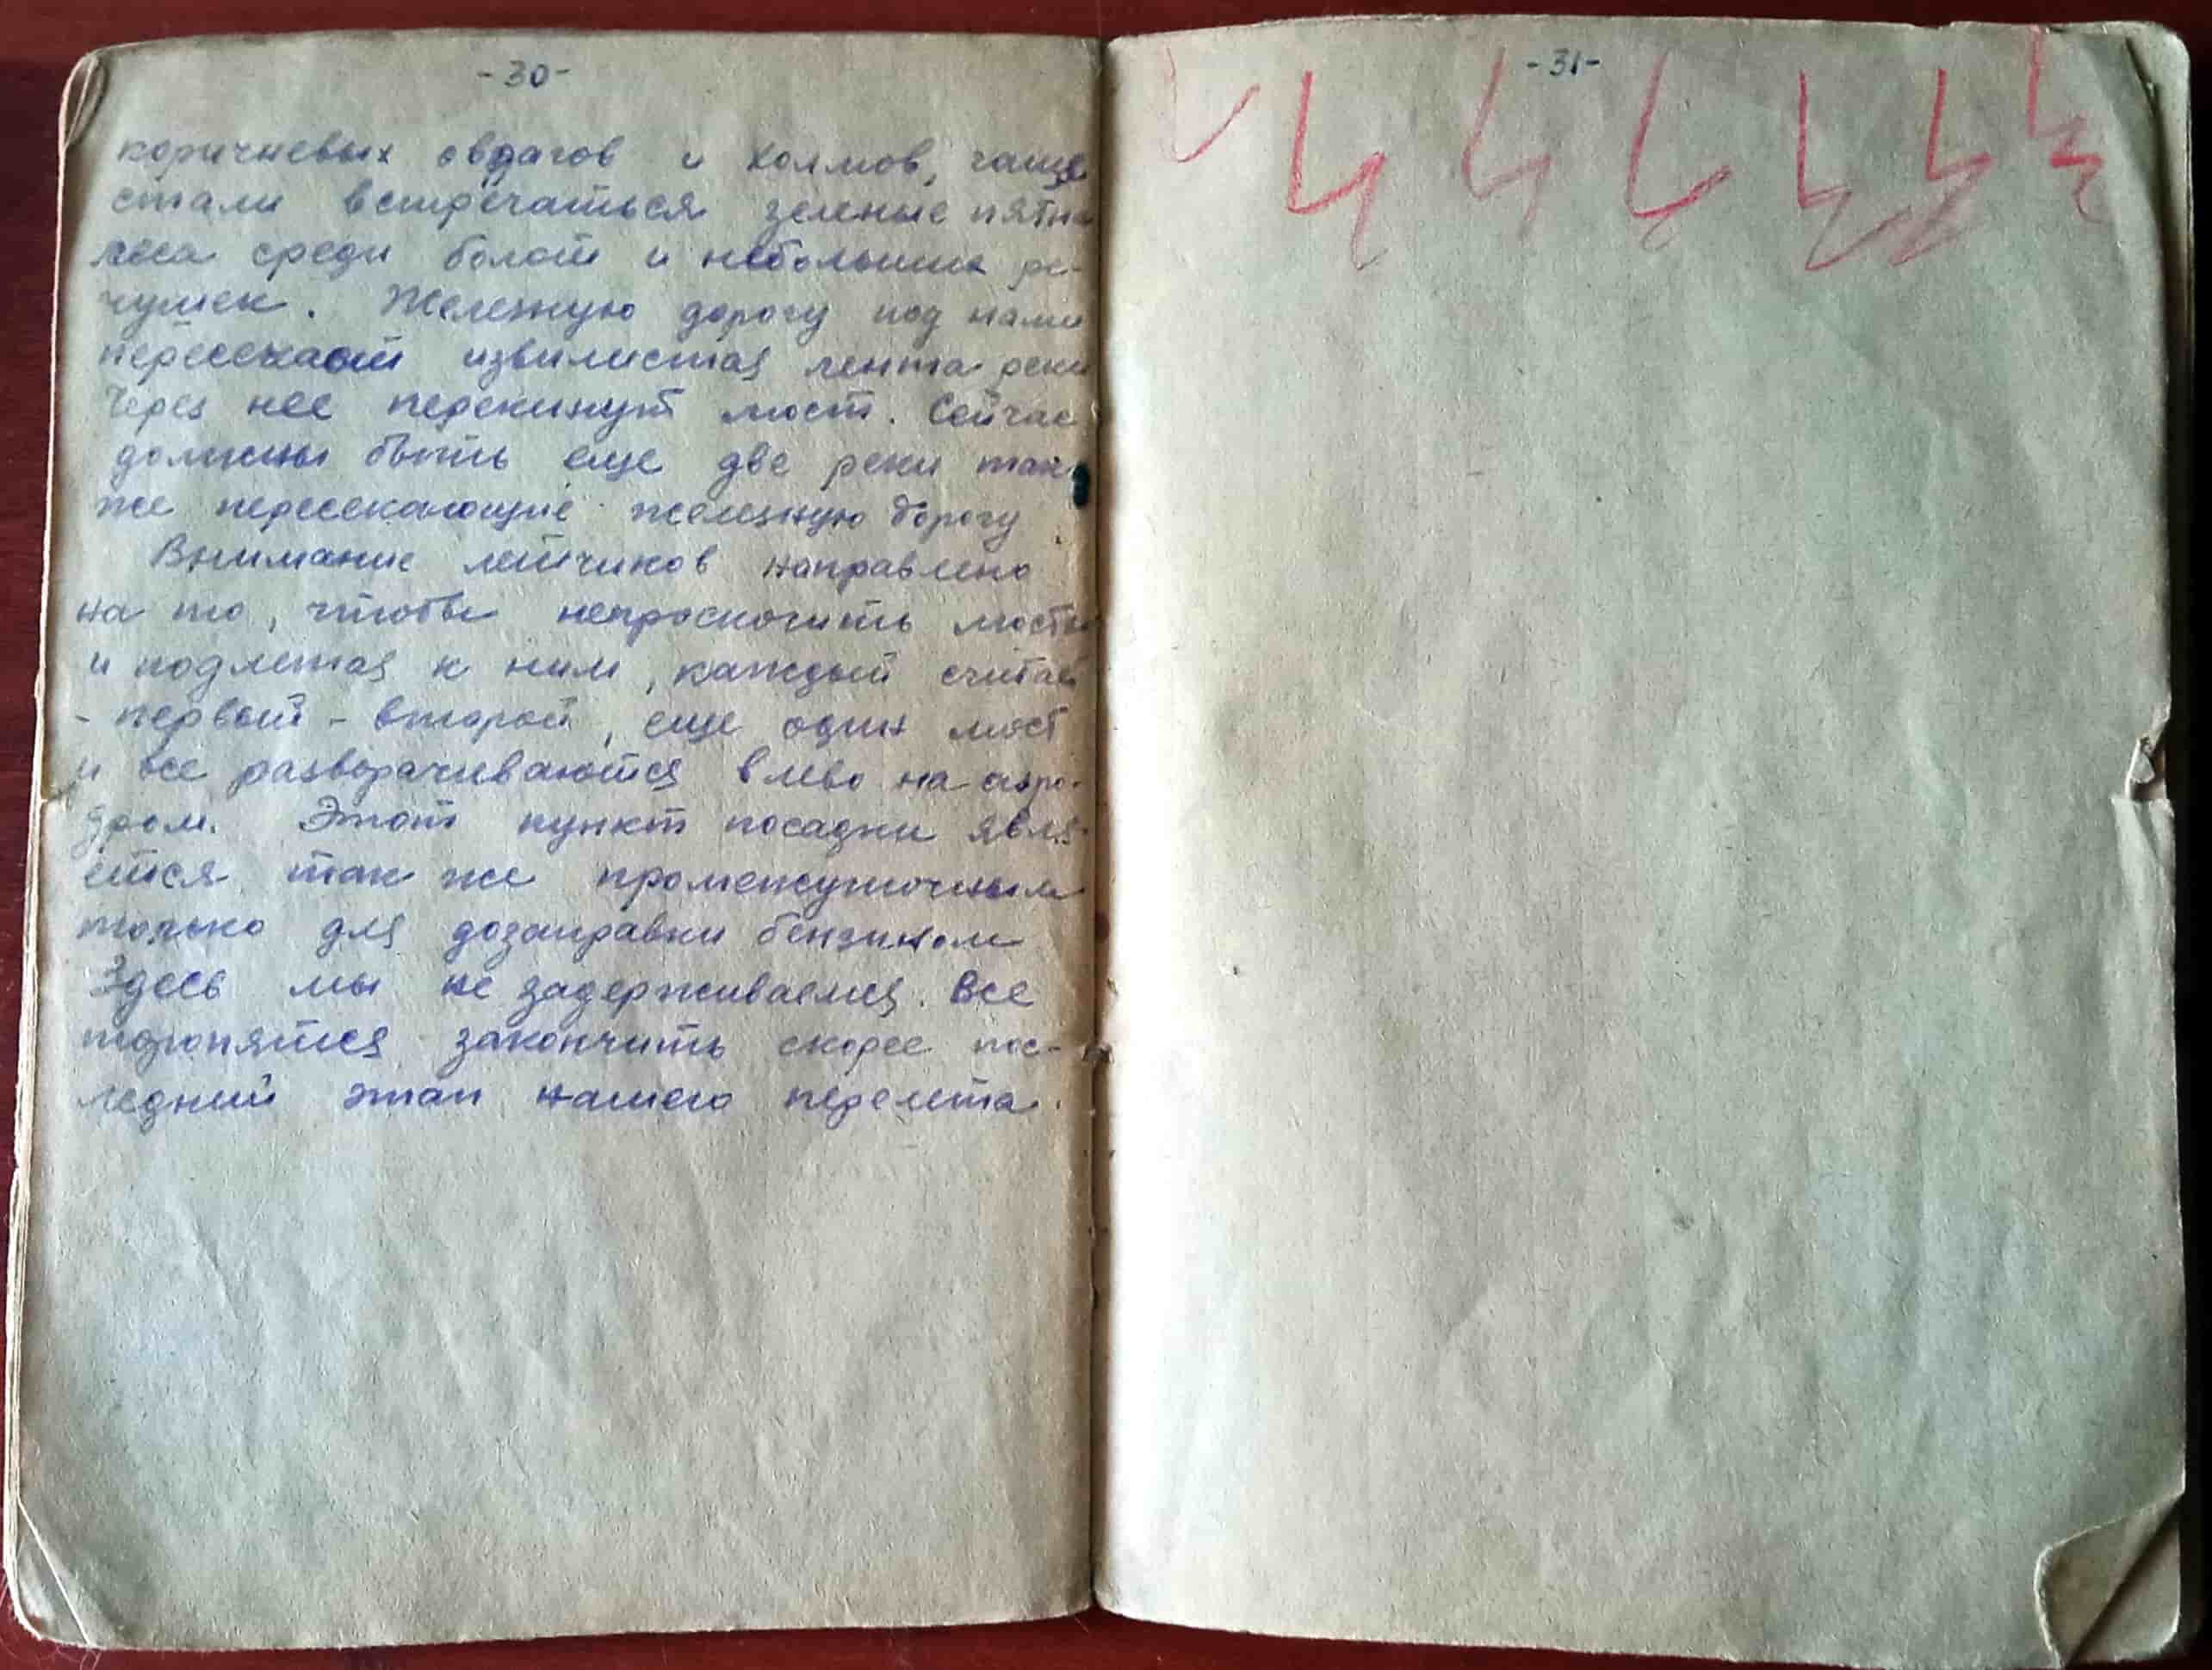 -30-
коричневых оврагов и холмов, чаще
стали встречаться зеленые пятна
леса среди болот и небольших ре-
чушек. Железную дорогу под нами
пересекает извилистая лента реки
Через нее перекинут мост. Сейчас
должны быть еще две реки так
же пересекающие железную дорогу.
Внимание летчиков направлено
на то, чтобы непроскочить мосты
и подлетая к ним, каждый считает
- первый - второй, еще один мост
и все разворачиваются влево на аэро-
дром. Этот пункт посадки явля-
ется так же промежуточным
только для дозаправки бензином
Здесь мы не задерживаемся. Все
торопятся закончить скорее пос-
ледний этап нашего перелета.
-31-